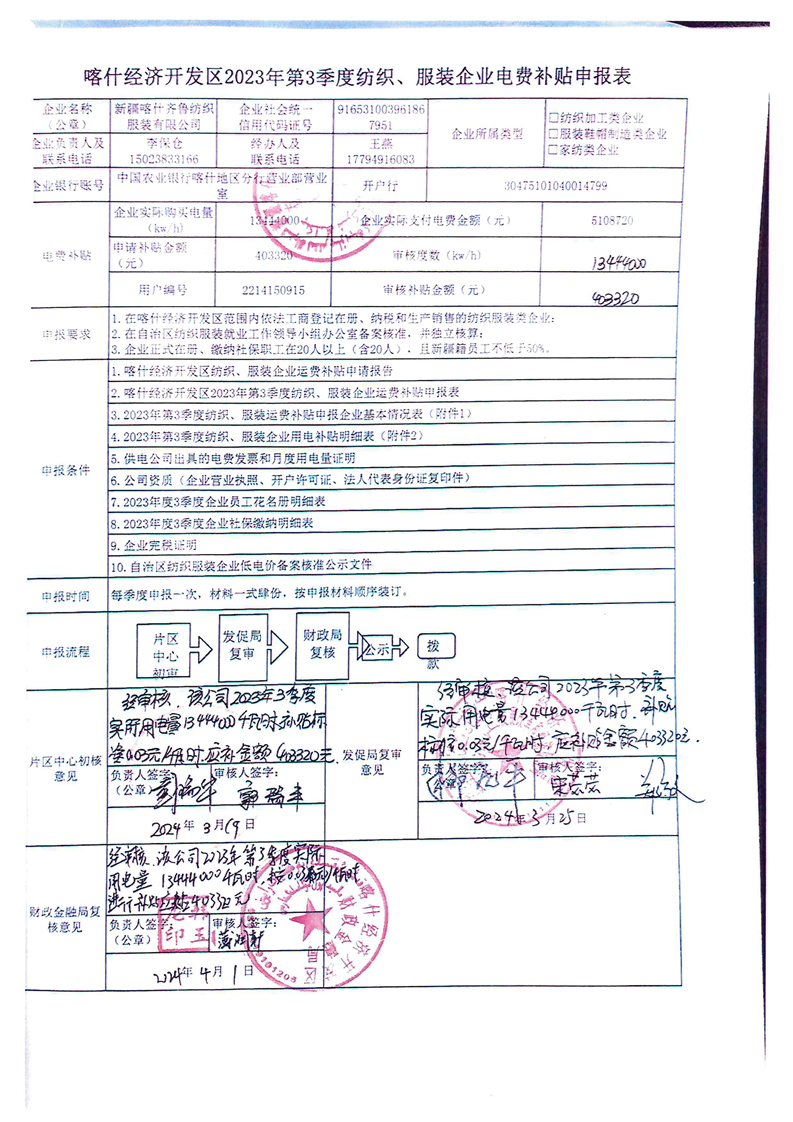 喀什经济开发区2023年第3季度纺织、服装企业电费补贴申报表
企业名称（公章）
新疆喀什齐鲁纺织服装有限公司
企业社会统一信用代码证号
916531003961867951
企业所属类型
□纺织加工类企业
□服装鞋帽制造类企业
□家纺类企业
企业负责人及联系电话
李保仓
15023833166
经办人及联系电话
王燕
17794916083
企业银行账号
中国农业银行喀什地区分行营业部营业室
开户行
30475101040014799
电费补贴
企业实际购买电量（kw/h）
13444000
企业实际支付电费金额（元）
5108720
申请补贴金额（元）
403320
审核度数（kw/h）
13444000
用户编号
2214150915
审核补贴金额（元）
403320
申报要求
1.在喀什经济开发区范围内依法工商登记在册、纳税和生产销售的纺织服装类企业；
2.在自治区纺织服装就业工作领导小组办公室备案核准，并独立核算；
3.企业正式在册、缴纳社保职工在20人以上（含20人），且新疆籍员工不低于50%。
申报条件
1.喀什经济开发区纺织、服装企业运费补贴申请报告
2.喀什经济开发区2023年第3季度纺织、服装企业运费补贴申报表
3.2023年第3季度纺织、服装运费补贴申报企业基本情况表（附件1）
4.2023年第3季度纺织、服装企业用电补贴明细表（附件2）
5.供电公司出具的电费发票和月度用电量证明
6.公司资质（企业营业执照、开户许可证、法人代表身份证复印件）
7.2023年度3季度企业员工花名册明细表
8.2023年度3季度企业社保缴纳明细表
9.企业完税证明
10.自治区纺织服装企业低电价备案核准公示文件
申报时间
每季度申报一次，材料一式肆份，按申报材料顺序装订。
申报流程
片区中心初审
发促局复审
财政局复核
公示
拨款
片区中心初核意见
经审核，该公司2023年3季度
实际用电量13444000千瓦时，补贴标
准0.03元/千瓦时，应补金额403320元
负责人签字：（公章）
审核人签字：
2024年3月19日
发促局复审意见
经审核，该公司2023年第3季度
实际用电量13444000千瓦时，补贴
标准0.03元/千瓦时，应补贴金额403320元.
负责人签字：
审核人签字：
2024年3月25日
财政金融局复核意见
经审核，该公司2023年第3季度实际
用电量13444000千瓦时，按0.03元/千瓦时
进行补贴应补403320元
负责人签字：（公章）
审核人签字：
2024年4月1日